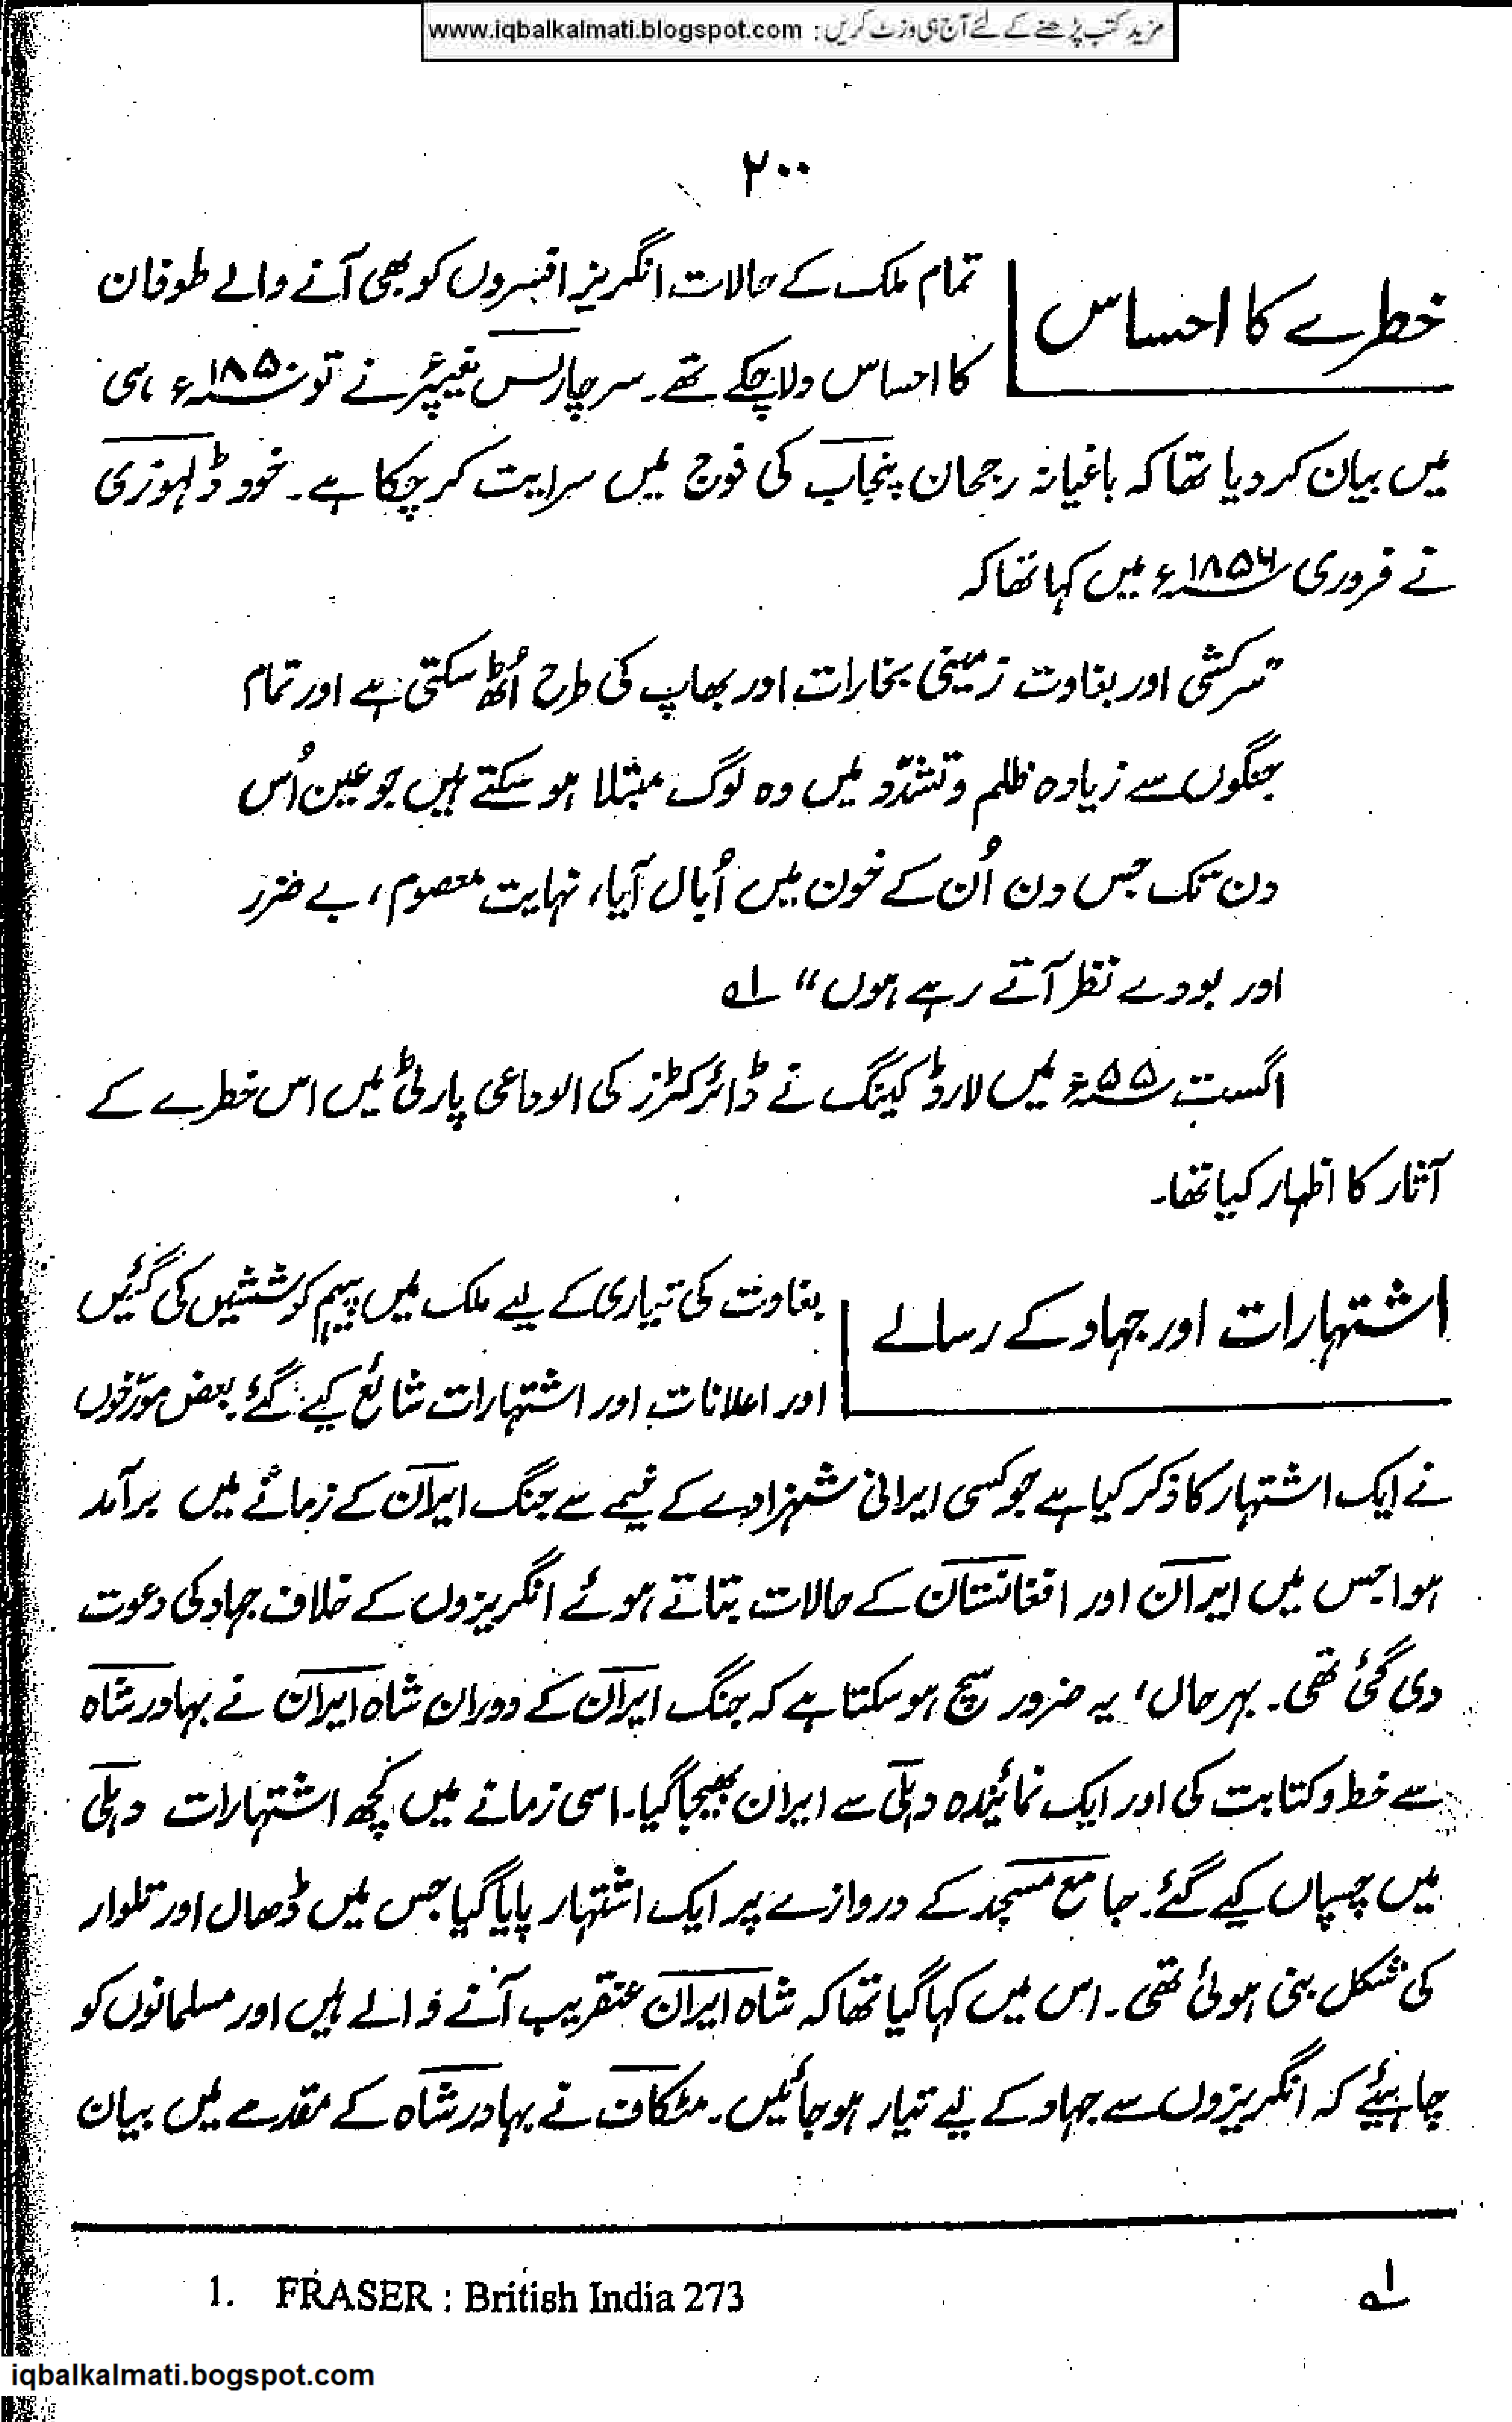 مزید کتب پڑھنے کے لئے آج ہی وزٹ کریں : www.iqbalkalmati.blogspot.com
۲۰۰
خطرے کا احساس
تمام ملک کے حالات انگریز افسروں کو بھی آنے والے طوفان
کا احساس دلا چکے تھے۔ سر چارلس نیپیئر نے تو ۱۸۵۰ء ہی
میں بیان کر دیا تھا کہ باغیانہ رجحان پنجاب کی فوج میں سرایت کر چکا ہے۔ خود ڈلہوزی
نے فروری ۱۸۵۶ء میں کہا تھا کہ
سرکشی اور بغاوت زمینی بخارات اور بھاپ کی طرح اُٹھ سکتی ہے اور تمام
جنگوں سے زیادہ ظلم و تشدّد میں وہ لوگ مبتلا ہو سکتے ہیں جو عین اُس
دن تک جس دن اُن کے خون میں اُبال آیا، نہایت معصوم، بے ضرر
اور بودے نظر آتے رہے ہوں“ ۱ے
اگست ۵۵ء میں لارڈ کیننگ نے ڈائرکٹرز کی الوداعی پارٹی میں اس خطرے کے
آثار کا اظہار کیا تھا۔
اشتہارات اور جہاد کے رسالے
بغاوت کی تیاری کے لیے ملک میں پیہم کوششیں کی گئیں
اور اعلانات اور اشتہارات شائع کیے گئے۔ بعض مورّخوں
نے ایک اشتہار کا ذکر کیا ہے جو کسی ایرانی شہزادے کے خیمے سے جنگ ایران کے زمانے میں برآمد
ہوا جس میں ایران اور افغانستان کے حالات بتاتے ہوئے انگریزوں کے خلاف جہاد کی دعوت
دی گئی تھی۔ بہرحال، یہ ضرور سچ ہو سکتا ہے کہ جنگ ایران کے دوران شاہ ایران نے بہادر شاہ
سے خط و کتابت کی اور ایک نمائندہ دہلی سے ایران بھیجا گیا۔ اسی زمانے میں کچھ اشتہارات دہلی
میں چسپاں کیے گئے۔ جامع مسجد کے دروازے پر ایک اشتہار پایا گیا جس میں ڈھال اور تلوار
کی شکل بنی ہوئی تھی۔ اس میں کہا گیا تھا کہ شاہ ایران عنقریب آنے والے ہیں اور مسلمانوں کو
چاہیئے کہ انگریزوں سے جہاد کے لیے تیار ہو جائیں۔ مٹکاف نے بہادر شاہ کے مقدمے میں بیان
۱ے
1. FRASER : British India 273
iqbalkalmati.bogspot.com